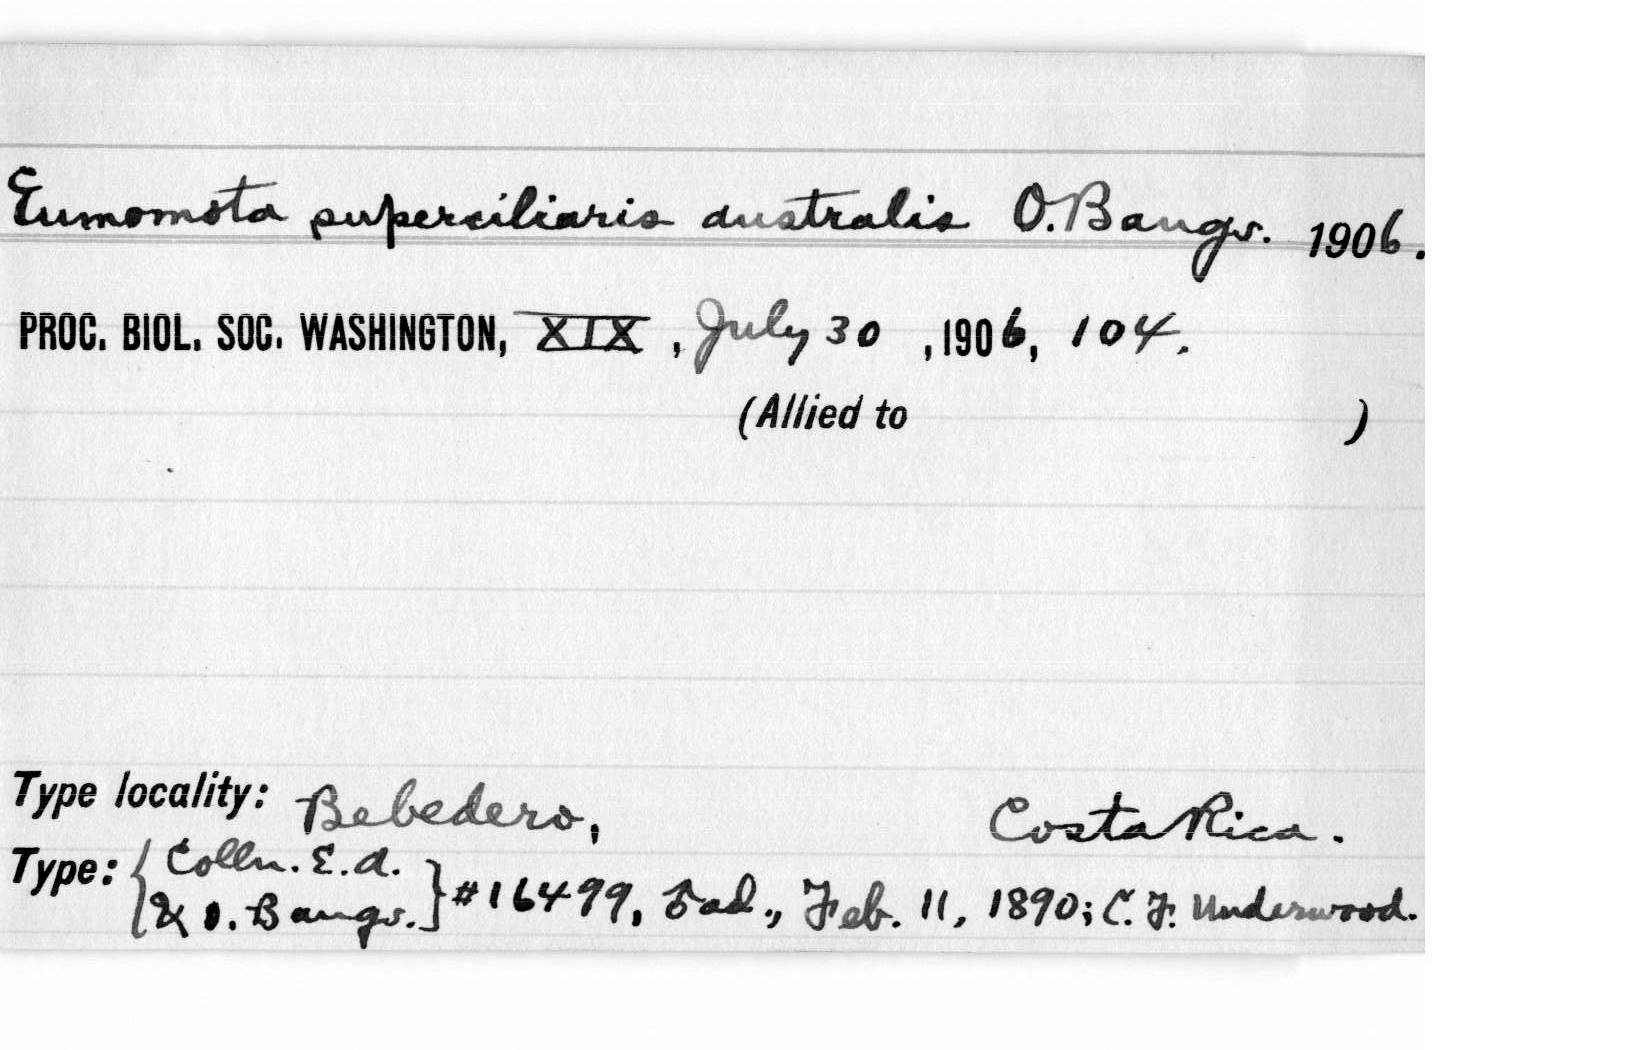 Eumomota superciliaris australis O. Bangs. 1906.
PROC. BIOL. SOC. WASHINGTON, XIX, July 30, 1906, 104.
(Allied to )
Type locality: Bebedero, Costa Rica.
Type: { Colln. E.A. & O. Bangs. } #16499, ad., Feb. 11, 1890; C. F. Underwood.